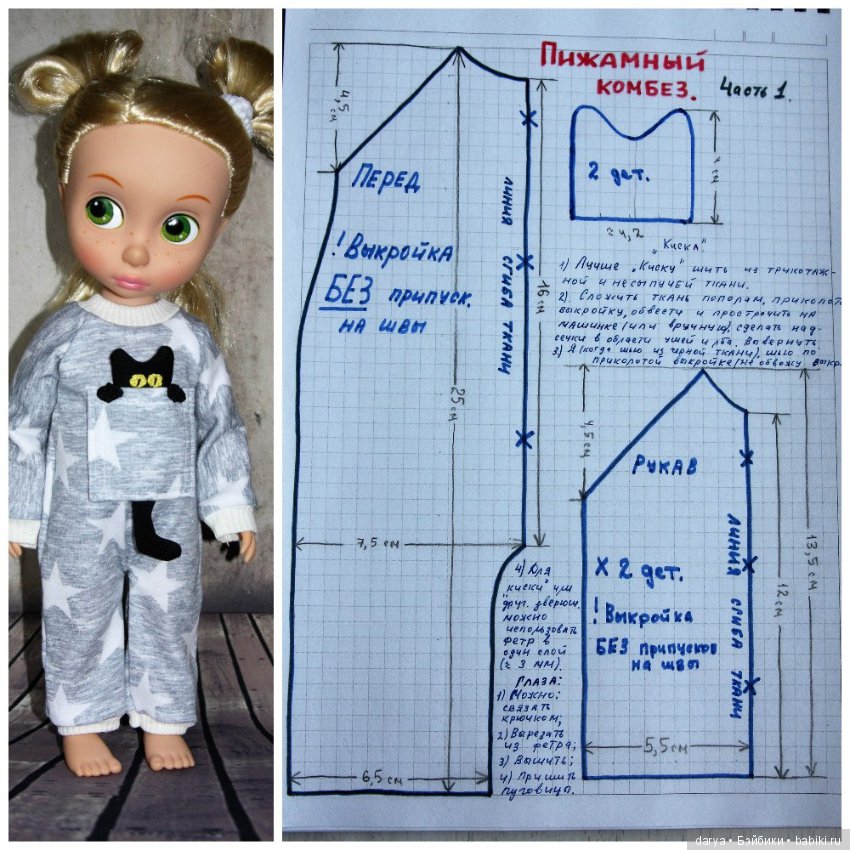 ПИЖАМНЫЙ
КОМБЕЗ. Часть 1.
4,5 см
ПЕРЕД
! Выкройка
БЕЗ припуск.
на швы
ЛИНИЯ СГИБА ТКАНИ
16 см
25 см
7,5 см
6,5 см
2 дет.
≈ 4,2
„Киска"
1) Лучше „Киску" шить из трикотаж-
ной и несыпучей ткани.
2). Сложить ткань пополам, приколоть
выкройку, обвести и прострочить на
машинке (или вручную), сделать над-
сечки в области ушей и лба. Вывернуть
3) Я (когда шью из чёрной ткани), шью по
приколотой выкройке (не обвожу выкр.
4) Для
„киски" или
друг. зверюш.
можно
использовать
фетр в
один слой
(≈ 3 мм).
ГЛАЗА:
1) Можно:
связать
крючком;
2) Вырезать
из фетра;
3) Вышить;
4) Пришить
пуговица.
4,5 см
РУКАВ
Х 2 дет.
! Выкройка
БЕЗ припусков
на швы
ЛИНИЯ СГИБА ТКАНИ
12 см
13,5 см
5,5 см
darya • Бэйбики • babiki.ru